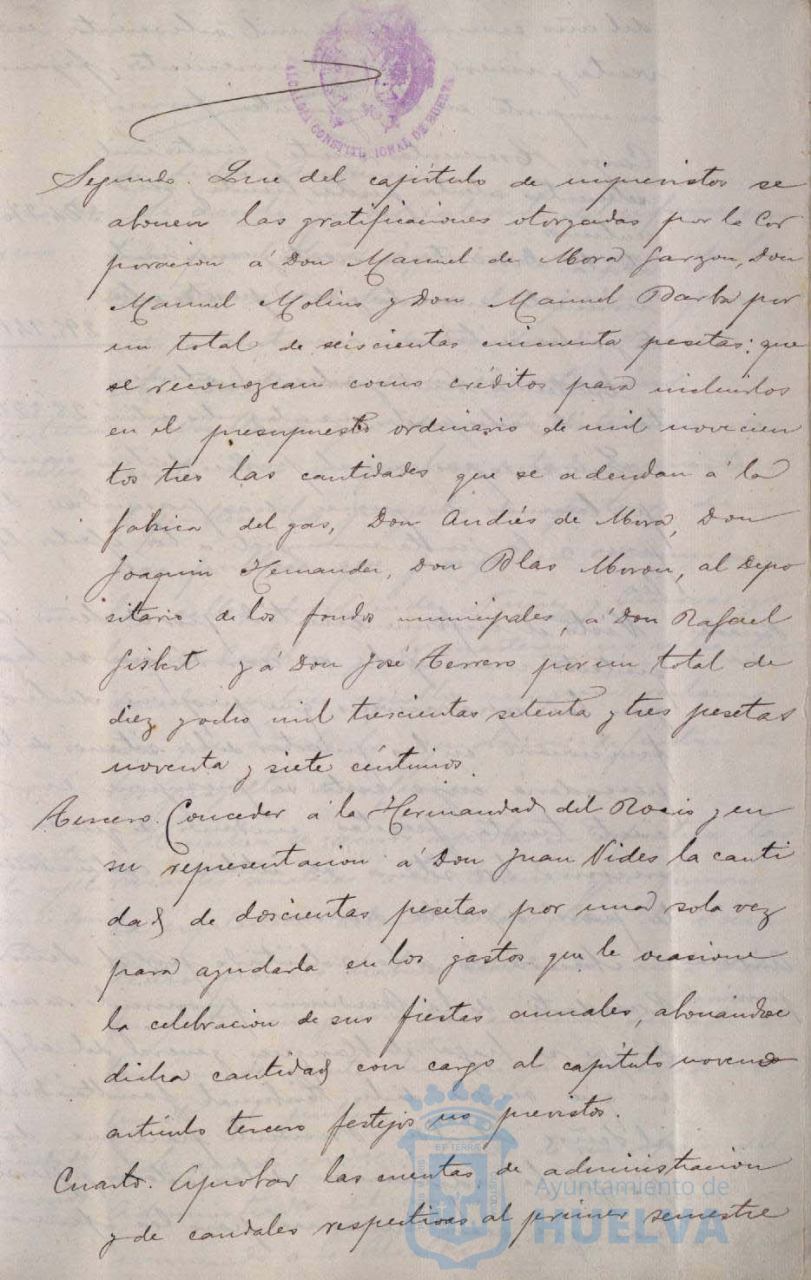 ALCALDIA CONSTITUCIONAL DE HUELVA
Segundo. Que del capítulo de imprevistos se
abonen las gratificaciones otorgadas por la Cor
poracion á Don Manuel de Mora Garzon, Don
Manuel Molins y Don Manuel Barba por
un total de seiscientas cincuenta pesetas: que
se reconozcan como créditos para incluirlos
en el presupuesto ordinario de mil novecien
tos tres las cantidades que se adeudan á la
fabrica del gas, Don Andrés de Mora, Don
Joaquin Hernandez, Don Blas Moron, al Depo
sitario de los fondos municipales, á Don Rafael
Gisbert y á Don José Terrero por un total de
diez y ocho mil trescientas setenta y tres pesetas
noventa y siete céntimos.
Tercero. Conceder á la Hermandad del Rocio y en
su representacion á Don Juan Vides la canti
dad de doscientas pesetas por una sola vez
para ayudarla en los gastos que le ocasione
la celebracion de sus fiestas anuales, abonándose
dicha cantidad con cargo al capítulo noveno
artículo tercero festejos no previstos.
Cuarto. Aprobar las cuentas de administracion
y de caudales respectivas al primer semestre
Ayuntamiento de
HUELVA